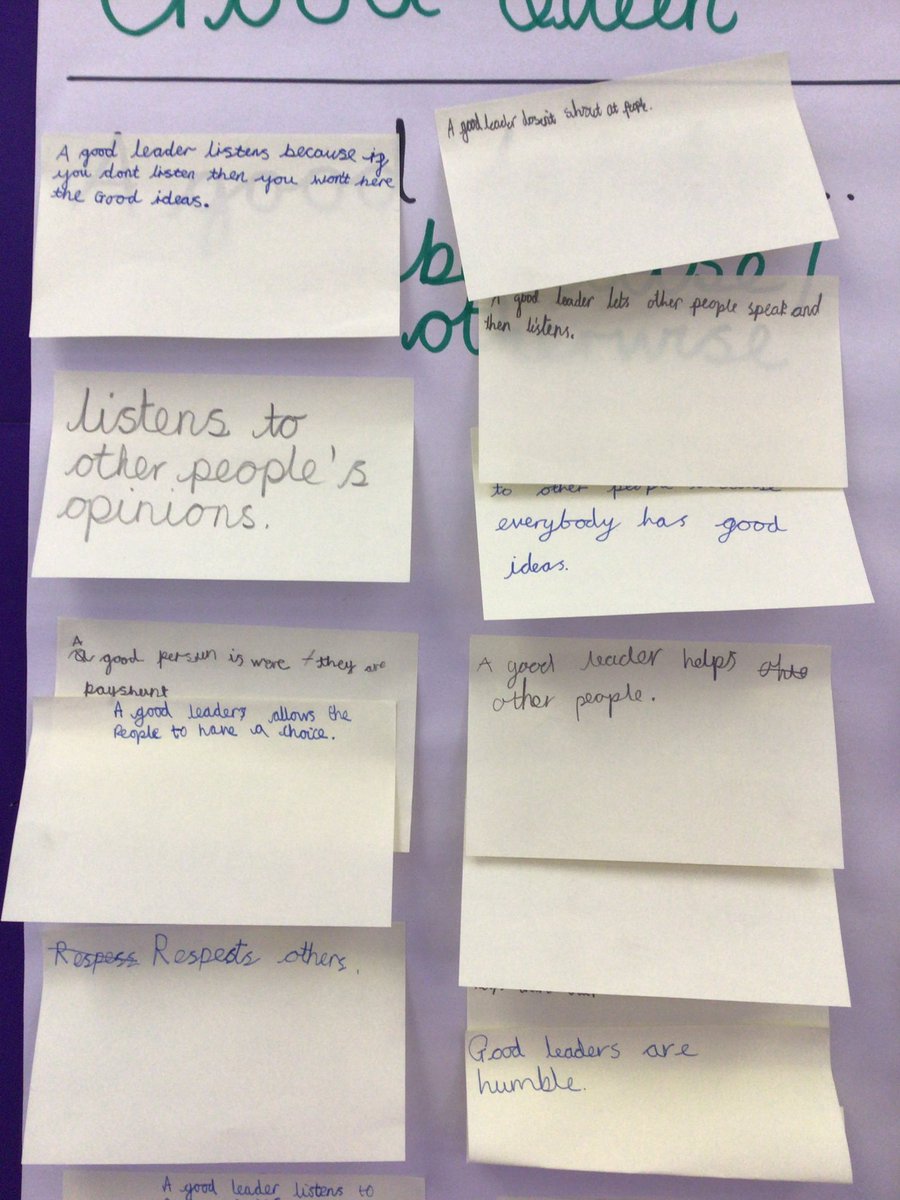 Good Queen
A good leader listens because if
you dont listen then you won't here
the Good ideas.
listens to
other people's
opinions.
A good person is were they are
payshunt
A good leaders allows the
People to have a choice.
Respess Respects others.
A good leader listens to
A good leader dosn't shout at people.
...
otherwise
A good leader lets other people speak and
then listens.
to other people
everybody has good
ideas.
A good leader helps
other people.
Good leaders are
humble.